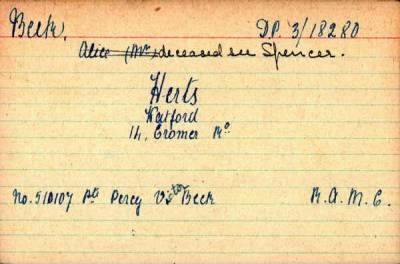 Beck, DP. 3/18280
Alice (Mrs) deceased see Spencer.
Herts
Watford
14, Cromer Rd
No. 510107 Pte Percy Victor Beck R.A.M.C.